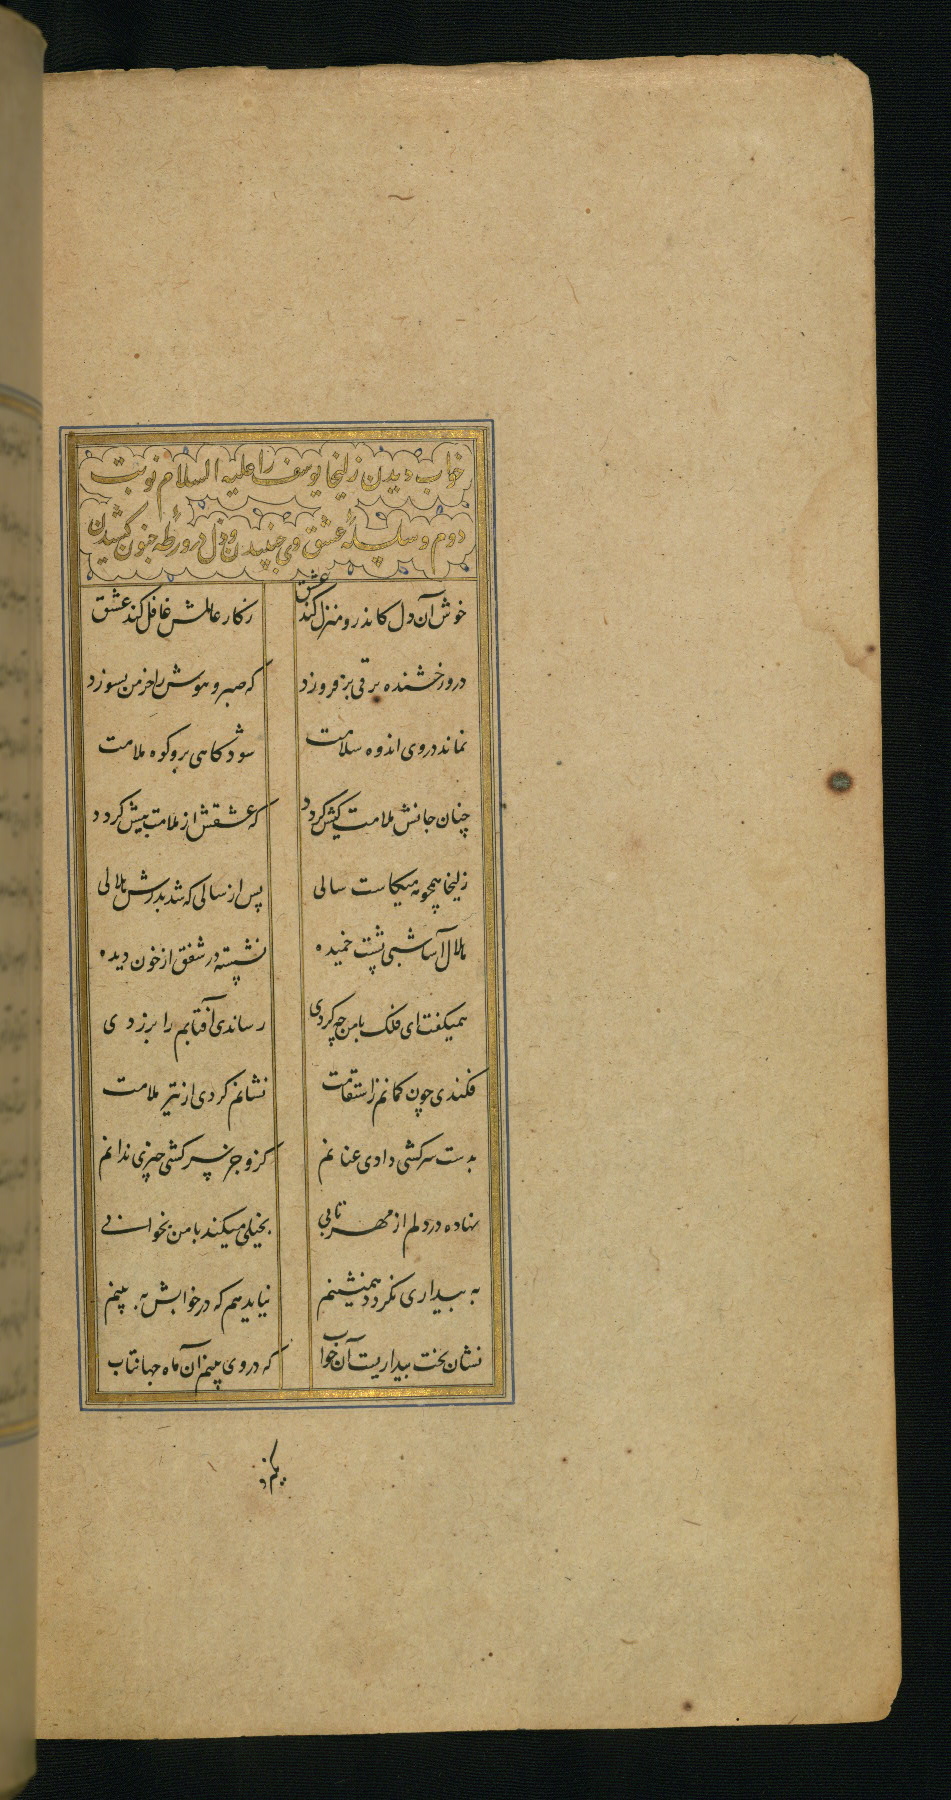 خواب دیدن زلیخا یوسف را علیه السلام نوبت
دوم و سلسلهٔ عشق وی جنبیدن و دل در ورطهٔ جنون کشیدن
خوش آن دل کاندرو منزل کند عشق زکار عالمش غافل کند عشق
درو رخشنده برقی برفروزد که صبر و هوش را خرمن بسوزد
نماند در وی اندوه سلامت شود کاهی برو کوه ملامت
چنان جانش ملامت کیش گردد که عشقش از ملامت بیش گردد
زلیخا همچو مه میکاست سالی پس از سالی که شد بدرش هلالی
هلال آسا شبی پشت خمیده نشسته در شفق از خون دیده
همیگفت ای فلک با من چه کردی رساندی آفتابم را بزردی
فکندی چون کمانم ز استقامت نشانم کردی از تیر ملامت
بدست سرکشی دادی عنانم کزو جز سرکشی چیزی ندانم
نهاده در دلم از مهر تابی بخیلی میکند با من بخوابی
به بیداری نگردد همنشینم نیاید هم که در خوابش به بینم
نشان بخت بیداریست آن خواب که در وی بینم آن ماه جهانتاب